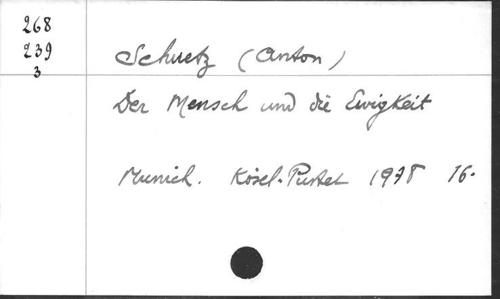 268
239
3
Schuetz (Anton)
Der Mensch und die Ewigkeit
Munich. Kösel-Pustet 1938 16.